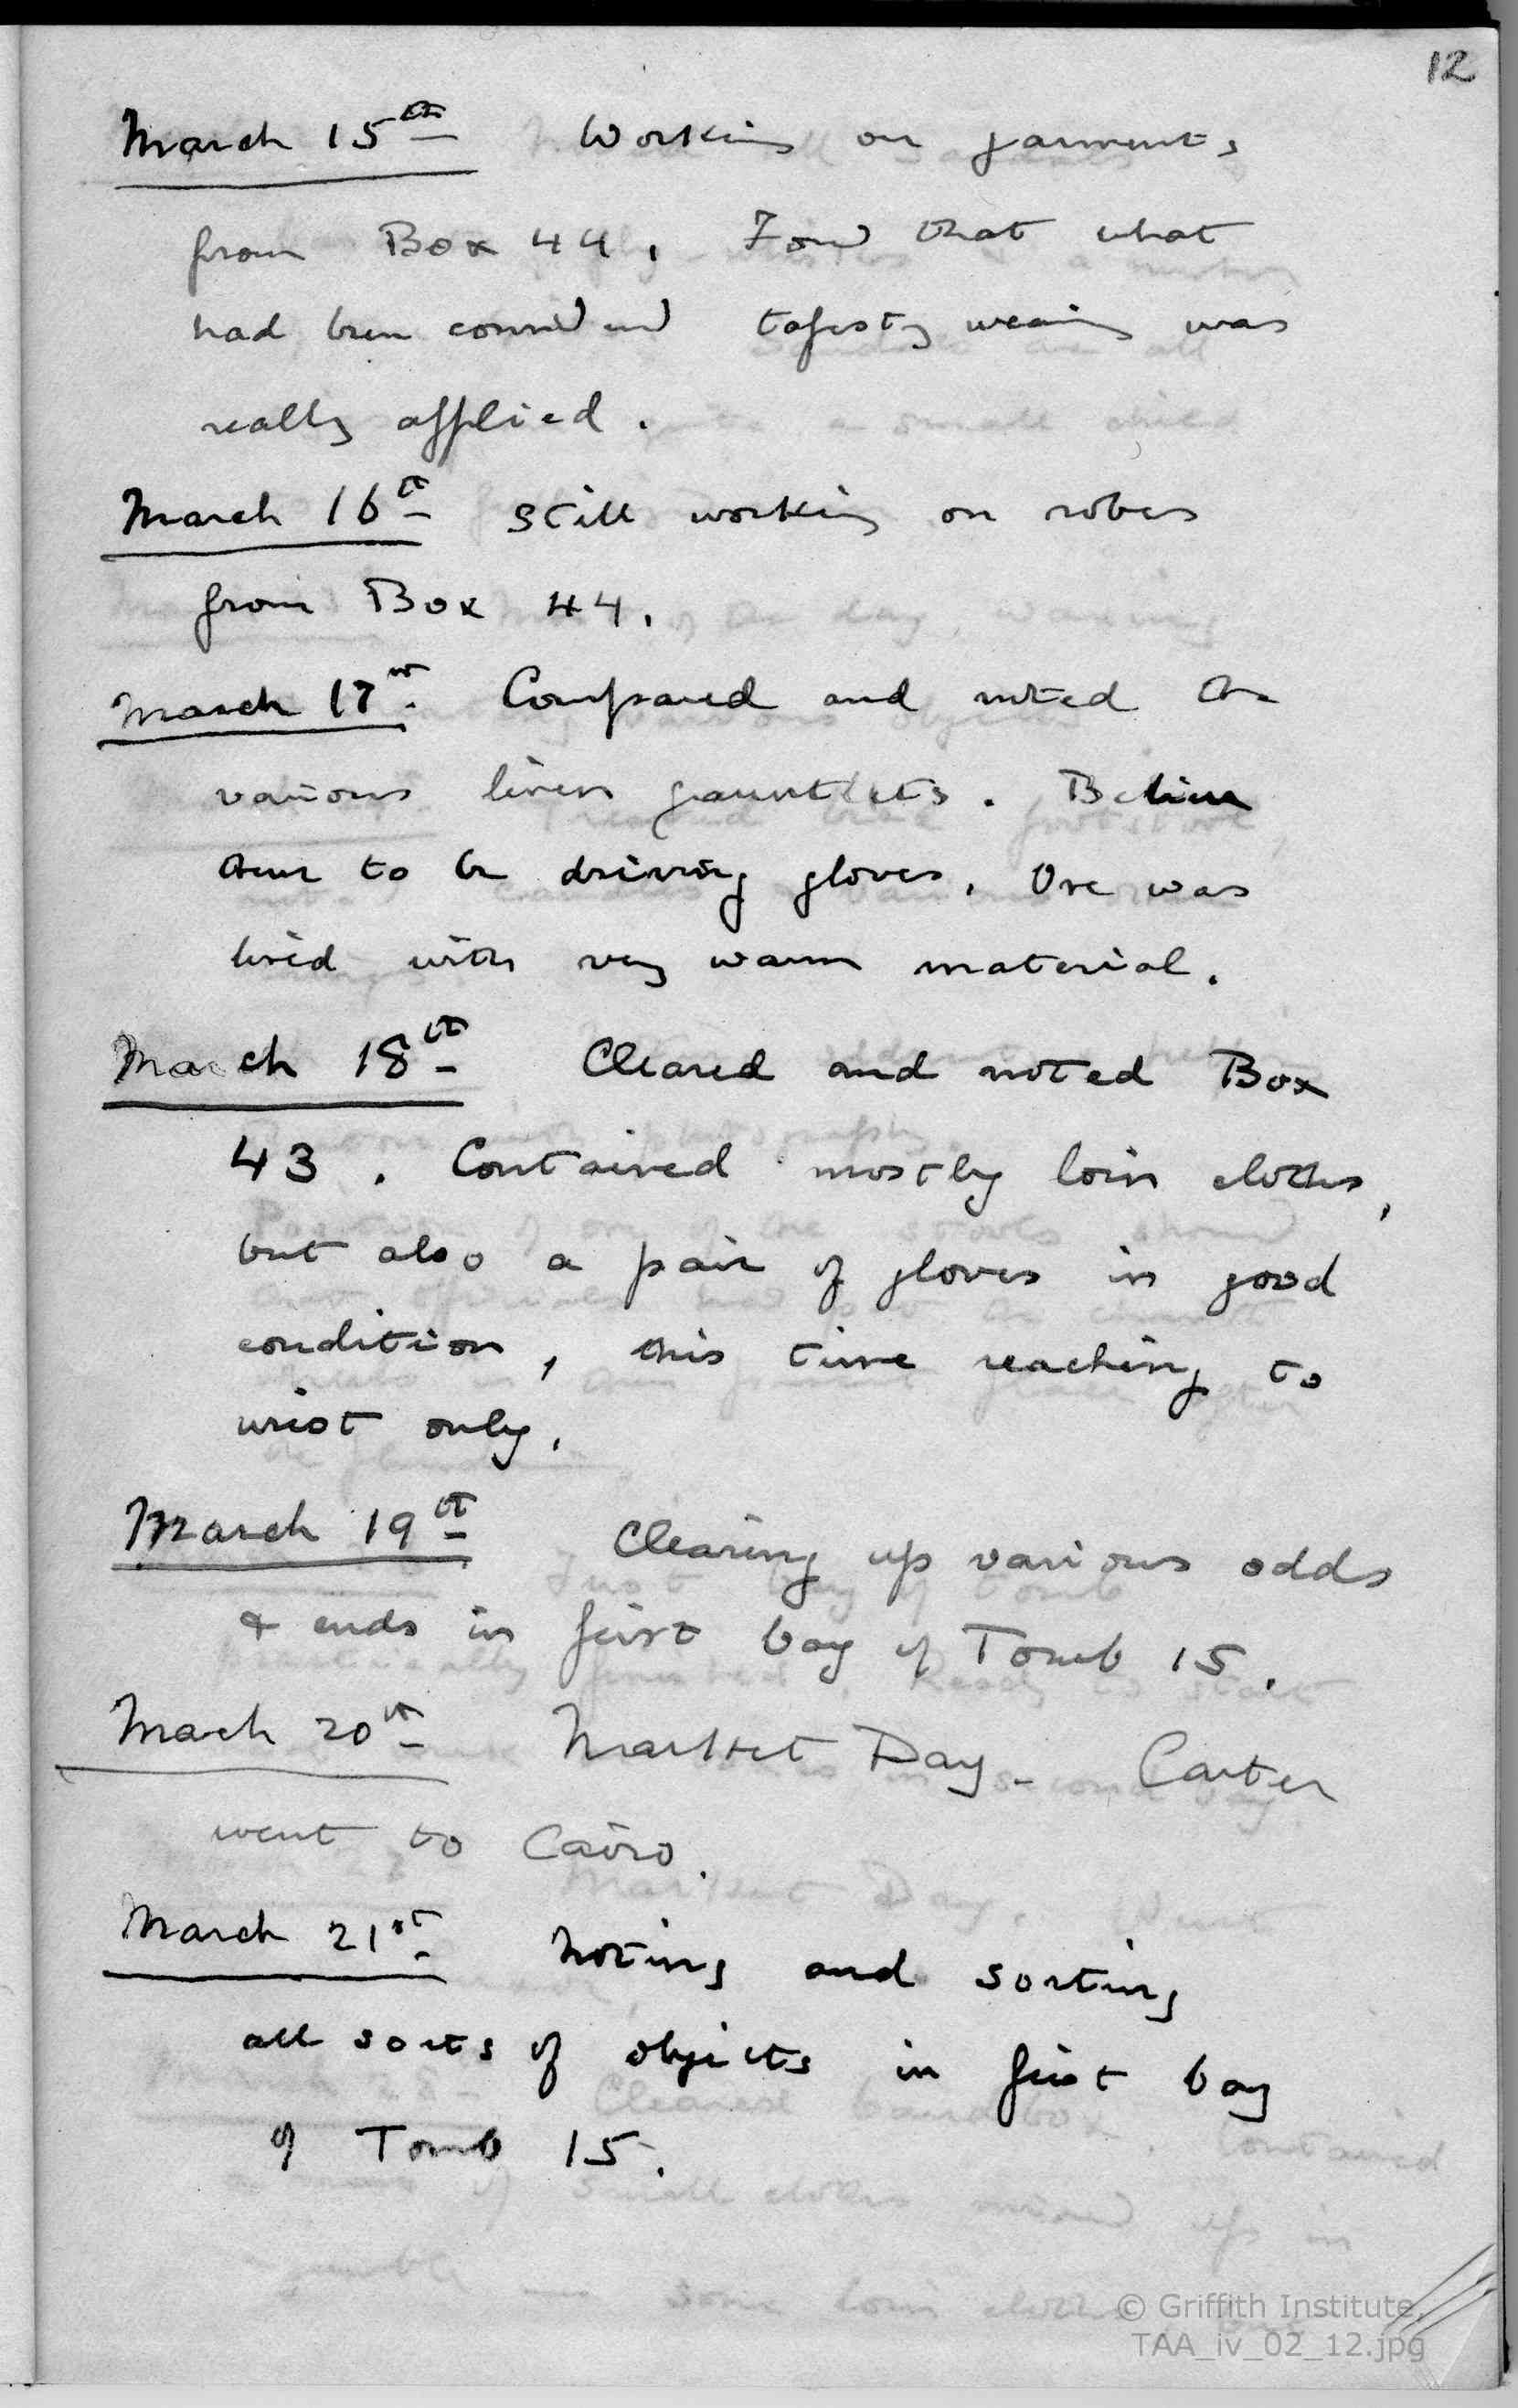 12
March 15th Working on garments
from Box 44. Found that what
had been considered tapestry weaving was
really applied.
March 16th Still working on robes
from Box 44.
March 17th. Compared and noted the
various linen gauntlets. Believe
them to be driving gloves. One was
lined with very warm material.
March 18th Cleared and noted Box
43. Contained mostly loin cloths,
but also a pair of gloves in good
condition, this time reaching to
wrist only.
March 19th Clearing up various odds
& ends in first bay of Tomb 15.
March 20th Market Day. Carter
went to Cairo.
March 21st. Noting and sorting
all sorts of objects in first bay
of Tomb 15.
© Griffith Institute,
TAA_iv_02_12.jpg